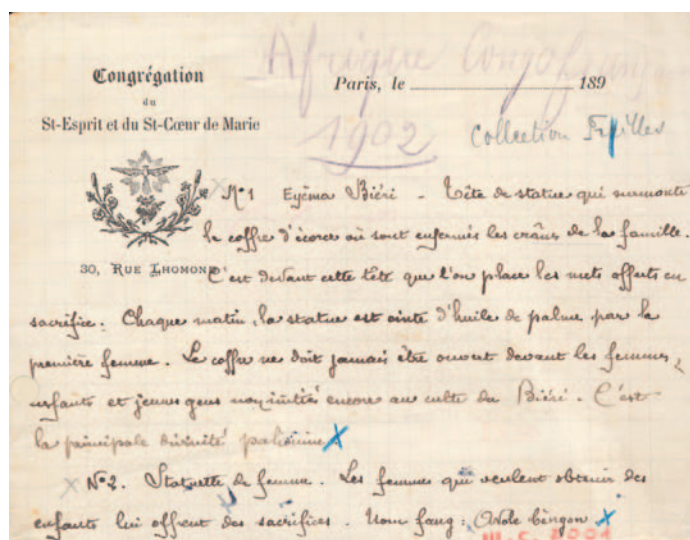 Afrique Congo français
1902
Collection
Congrégation
du
St-Esprit et du St-Cœur de Marie
Paris, le 189
30, Rue Lhomond
N°1 Eyéma Biéri - Tête de statue qui surmonte
le coffre d'écorce où sont enfermés les crânes de la famille.
C'est devant cette tête que l'on place les mets offerts en
sacrifice. Chaque matin, la statue est ointe d'huile de palme par la
première femme. Le coffre ne doit jamais être ouvert devant les femmes,
enfants et jeunes gens non initiés encore au culte du Biéri. C'est
la principale divinité pahouine X
X N°2. Statuette de femme. Les femmes qui veulent obtenir des
enfants lui offrent des sacrifices. Nom fang: